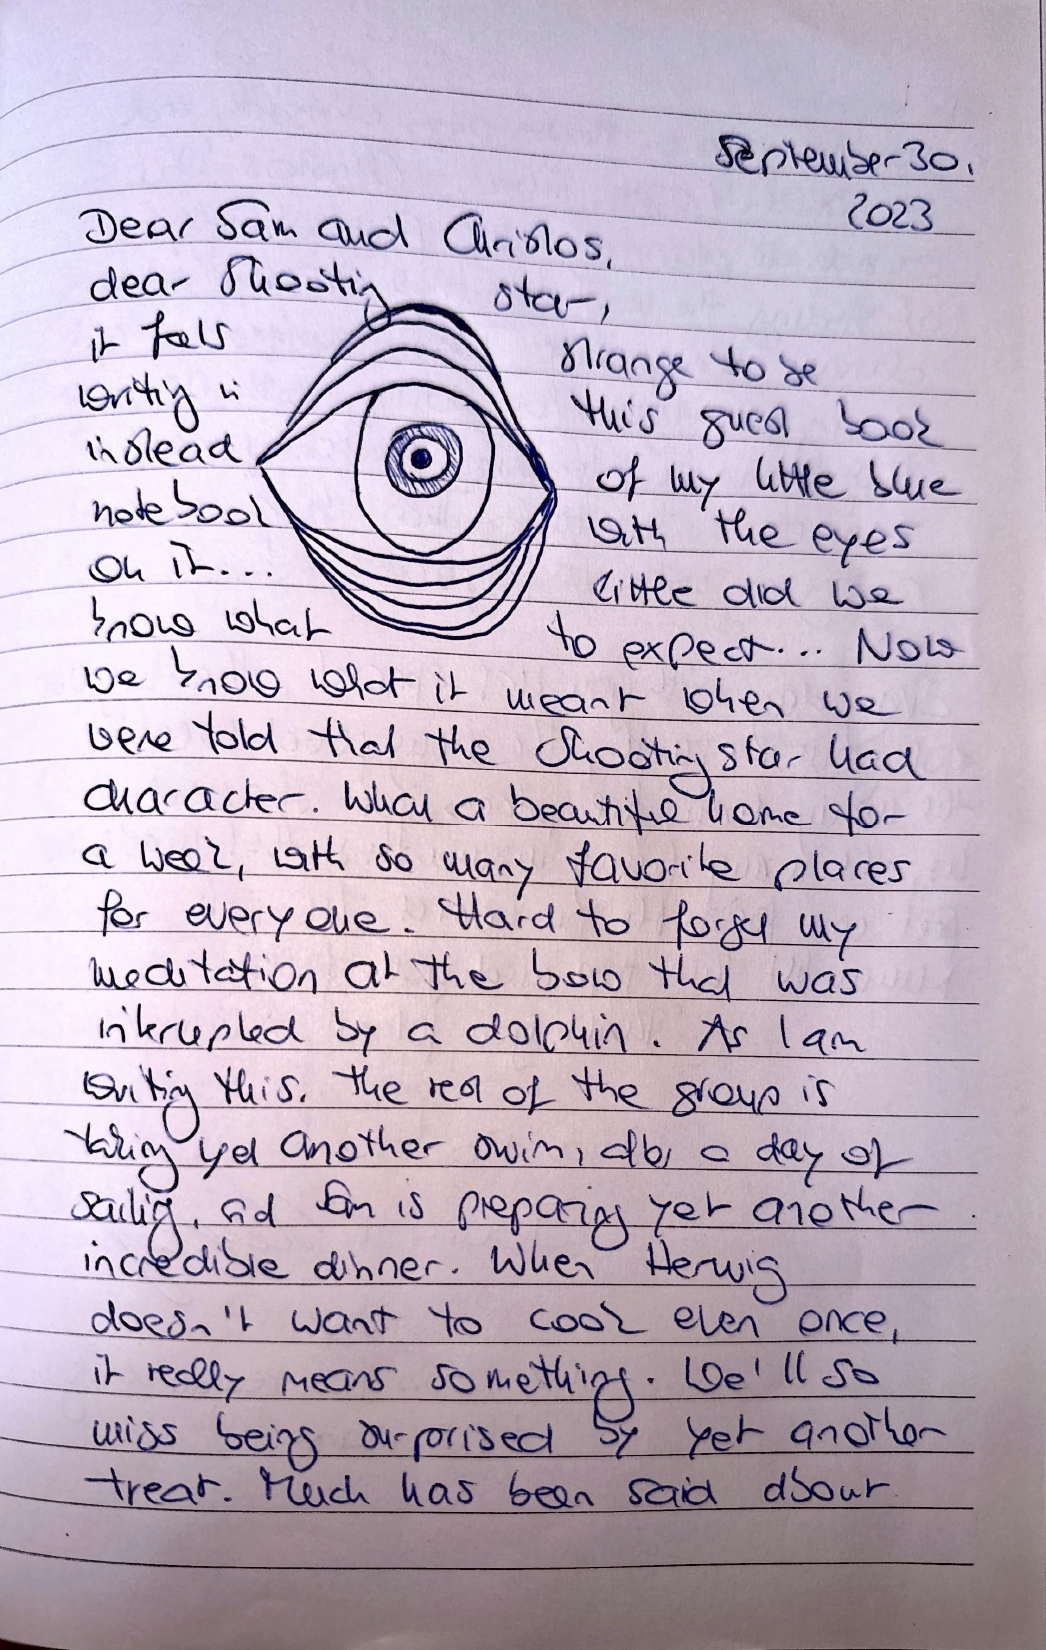 September 30.
2023
Dear Sam and Christos,
dear Shooting star,
it feels strange to be
writing in this guest book
instead of my little blue
notebook with the eyes
on it... little did we
know what to expect... Now
we know what it meant when we
were told that the Shooting star had
character. What a beautiful home for
a week, with so many favorite places
for everyone. Hard to forget my
meditation at the bow that was
interrupted by a dolphin. As I am
writing this, the rest of the group is
taking yet another swim, after a day of
sailing, and Sam is preparing yet another
incredible dinner. When Herwig
doesn't want to cook even once,
it really means something. We'll so
miss being surprised by yet another
treat. Much has been said about